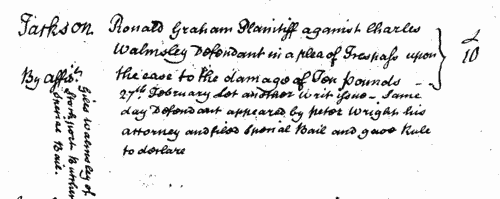 Jackson. Ronald Graham Plaintiff against Charles
Walmsley Defendant in a plea of Trespass upon
the case to the damage of Ten pounds
£
10
27th February let another writ issue - Same
day Defendant appeared by peter Wright his
attorney and filed special Bail and gave Rule
to declare
By affit.
Giles Walmsley of
Stockport
Special Bail.